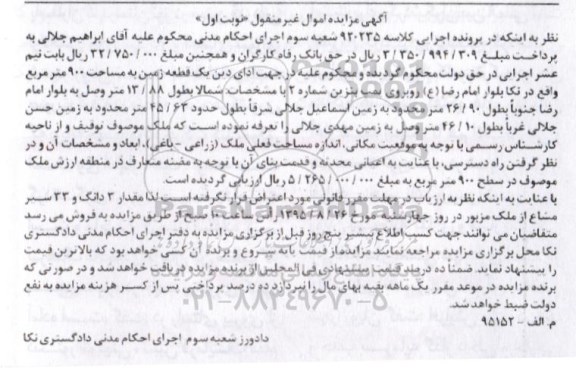 آگهی مزایده اموال غیر منقول «نوبت اول»
نظر به اینکه در پرونده اجرایی کلاسه ۹۲۰۲۳۵ شعبه سوم اجرای احکام مدنی محکوم علیه آقای ابراهیم جلالی به
پرداخت مبلغ ۳۰۹ / ۹۹۴ / ۳۵۰ / ۳ ریال در حق بانک رفاه کارگران و همچنین مبلغ ۰۰۰ / ۷۵۰ / ۳۲ ریال بابت نیم
عشر اجرایی در حق دولت محکوم گردیده و محکوم علیه در جهت ادای دین یک قطعه زمین به مساحت ۹۰۰ متر مربع
واقع در نکا بلوار امام رضا (ع) روبروی پمپ بنزین شماره ۲ با مشخصات شمالا بطول ۸۸ / ۱۳ متر وصل به بلوار امام
رضا جنوباً بطول ۹۰ / ۳۶ متر محدود به زمین اسماعیل جلالی شرقاً بطول حدود ۶۳ / ۴۵ متر محدود به زمین حسن
جلالی غرباً بطول ۱۰ / ۴۶ متر وصل به زمین مهدی جلالی را تعرفه نموده است که ملک موصوف توقیف و از ناحیه
کارشناس رسمی با توجه به موقعیت مکانی، اندازه مساحت فعلی ملک (زراعی - باغی)، ابعاد و مشخصات آن و در
نظر گرفتن راه دسترسی، با عنایت به اعیانی محدثه و قدمت بنای آن با توجه به مظنه متعارف در منطقه ارزش ملک
موصوف در سطح ۹۰۰ متر مربع به مبلغ ۰۰۰ / ۰۰۰ / ۲۶۵ / ۵ ریال ارزیابی گردیده است.
با عنایت به اینکه نظریه ارزیاب در مهلت مقرر قانونی مورد اعتراض قرار نگرفته است لذا مقدار ۳ دانگ و ۳۳ سیر
مشاع از ملک مزبور در روز چهارشنبه مورخ ۲۶ / ۸ / ۱۳۹۵ از طریق مزایده به فروش می رسد
متقاضیان می توانند جهت کسب اطلاع بیشتر پنج روز قبل از برگزاری مزایده به دفتر اجرای احکام مدنی دادگستری
نکا محل برگزاری مزایده مراجعه نمایند مزایده از قیمت پایه شروع و برنده آن کسی خواهد بود که بالاترین قیمت
را پیشنهاد نماید. ضمناً ده درصد قیمت پیشنهادی فی المجلس از برنده مزایده دریافت خواهد شد و در صورتی که
برنده مزایده در موعد مقرر یک ماهه بقیه بهای مال را نپردازد ده درصد پرداختی پس از کسر هزینه مزایده به نفع
دولت ضبط خواهد شد.
م. الف - ۹۵۱۵۲
دادورز شعبه سوم اجرای احکام مدنی دادگستری نکا
ParsNamadData
۰۲۱-۸۸۳۴۹۶۷۰-۵